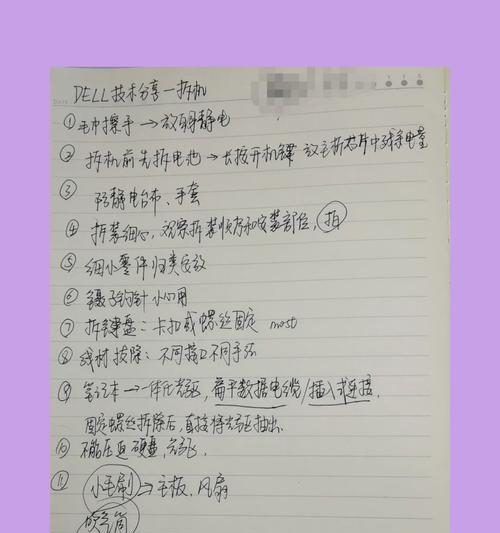 DELL技术分享一拆机
①毛巾擦手→放身静电
②拆机前先拆电池→长按开机键 放主板芯片中残余电量
③防静电台布、手套
④拆装细心,观察拆装顺序和安装部位,拍
⑤细小零件归类安放
⑥镊子钩针小心用
⑦拆键盘:卡扣或螺丝固定 most
⑧线材拔除:不同接口不同手法
⑨笔记本→一体化光驱,扁平数据电缆/插入式连接.
固定螺丝拆除后,直接将光驱抽出.
⑩不能压迫硬盘,光驱.
⑪小毛刷→主板、风扇
吹气筒